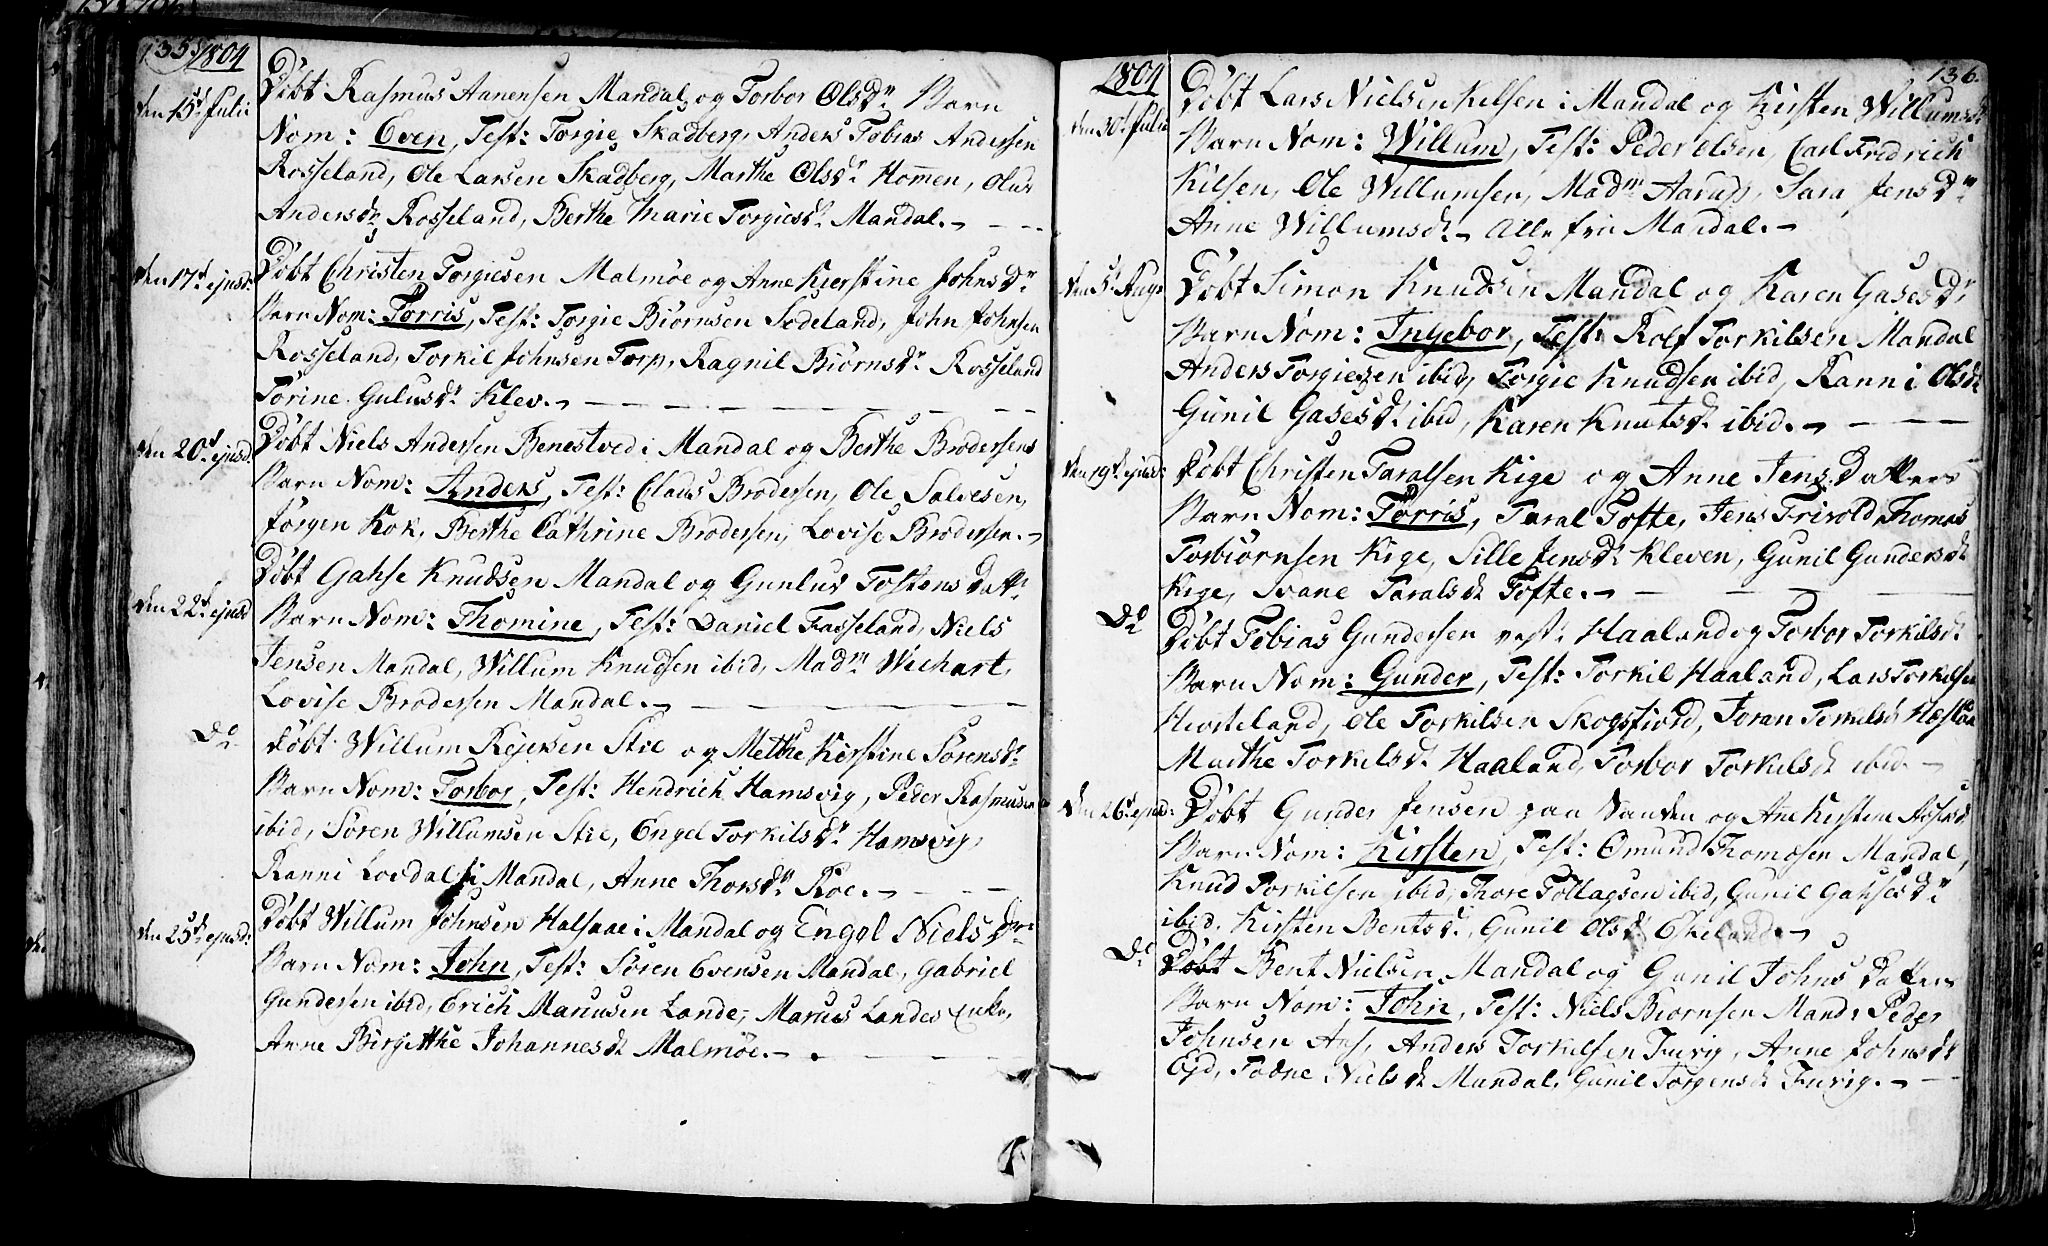 135. 1804
den 15d Julii
Döbt Rasmus Aanensen Mandal og Torbor Olsdr Barn
Nom: Even, Test: Torgie Skadberg, Anders Tobias Andersen
Rosseland, Ole Larsen Skadberg, Marthe Olsdr Homen, Olus
Andersdr Rosseland, Berthe Marie Torgiesdr Mandal.
den 17d ejusd:
Döbt Christen Torgiesen Malmöe og Anne Kierstine Johnsdr
Barn Nom: Torris, Test: Torgie Biörnsen Sodeland, John Johnsen
Rosseland, Torkil Johnsen Torp, Ragnil Biörnsdr Rosseland
Torine Gulusdr Klev.
den 20d ejusd.
Döbt Niels Andersen Benestved i Mandal og Berthe Brodersens
Barn Nom: Anders, Test: Claus Brodersen, Ole Salvesen,
Jörgen Kok, Berthe Cathrine Brodersen, Lovise Brodersen.
den 22d ejusd
Döbt Gahse Knudsen Mandal og Gunluv Tostens Datt:
Barn Nom: Thomine, Test: Daniel Fasseland, Niels
Jensen Mandal, Willum Knudsen ibid, Madm Wichart,
Lovise Brodersen Mandal.
Do
Döbt Willum Rejersen Stie og Methe Kirstine Sörensdr
Barn Nom: Torbor, Test: Hendrich Hamsvig, Peder Rasmusen
ibid, Sören Willumsen Stie, Engel Torkilsdr Hamsvig,
Ranni Lovdal i Mandal, Anne Thorsdr Roe.
den 25d ejusd:
Döbt Willum Johnsen Halsaae i Mandal og Engel Niels Dr
Barn Nom: John, Test: Sören Evensen Mandal, Gabriel
Gundersen ibid, Erich Marcusen Lande, Marcus Landes Enke,
Anne Birgitthe Johannesdr Malmöe.
1804 136.
den 30d Julii
Döbt Lars Nielsen Kilsen i Mandal og Kirsten Willumsdr
Barn Nom: Willum, Test: Peder Olsen, Carl Fredrich
Kilsen, Ole Willumsen, Madm Aarup, Sara Jensdr
Anne Willumsdr Alle fra Mandal.
den 5d Aug:
Döbt Simon Knudsen Mandal og Karen Gasesdr
Barn Nom: Ingebor, Test: Rolf Torkilsen Mandal
Anders Torgiesen ibid, Torgie Knudsen ibid, Ranni Olsdr
Gunil Gasesdr ibid, Karen Knutsdr ibid.
den 19d ejusd:
Döbt Christen Taralsen Kige og Anne Jens Datters
Barn Nom: Torris, Taral Tofte, Jens Frivold, Thomas
Torbiörnsen Kige, Sille Jensdr Kleven, Gunil Gundersdr
Kige, Svane Taralsdr Tofte.
Do
Döbt Tobias Gundersen vest: Haaland og Torbor Torkilsdr
Barn Nom: Gunder, Test: Torkil Haaland, Lars Torkelsen
Hiorteland, Ole Torkilsen Skogsfiord, Joran Torkelsdr
Marthe Torkelsdr Haaland, Torbor Torkelsdr ibid.
den 26d ejusd:
Döbt Gunder Jensen paa Sanden og Ane Kirstine
Barn Nom: Kirsten, Test: Omund Thomosen Mandal,
Knud Torkilsen ibid, Thore Tollagsen ibid, Gunil Gahsesdr
ibid. Kirsten Bentsdr, Gunil Olsdr Eheland.
Do
Döbt Bent Nielsen Mandal og Gunil Johns Datters
Barn Nom: John, Test: Niels Biornsen Mand: Peder
Johnsen Aas, Anders Torkelsen Fuvig, Anne Johnsdr
Ejd, Todne Nielsdr Mandal, Gunil Torgensdr Fuvig.